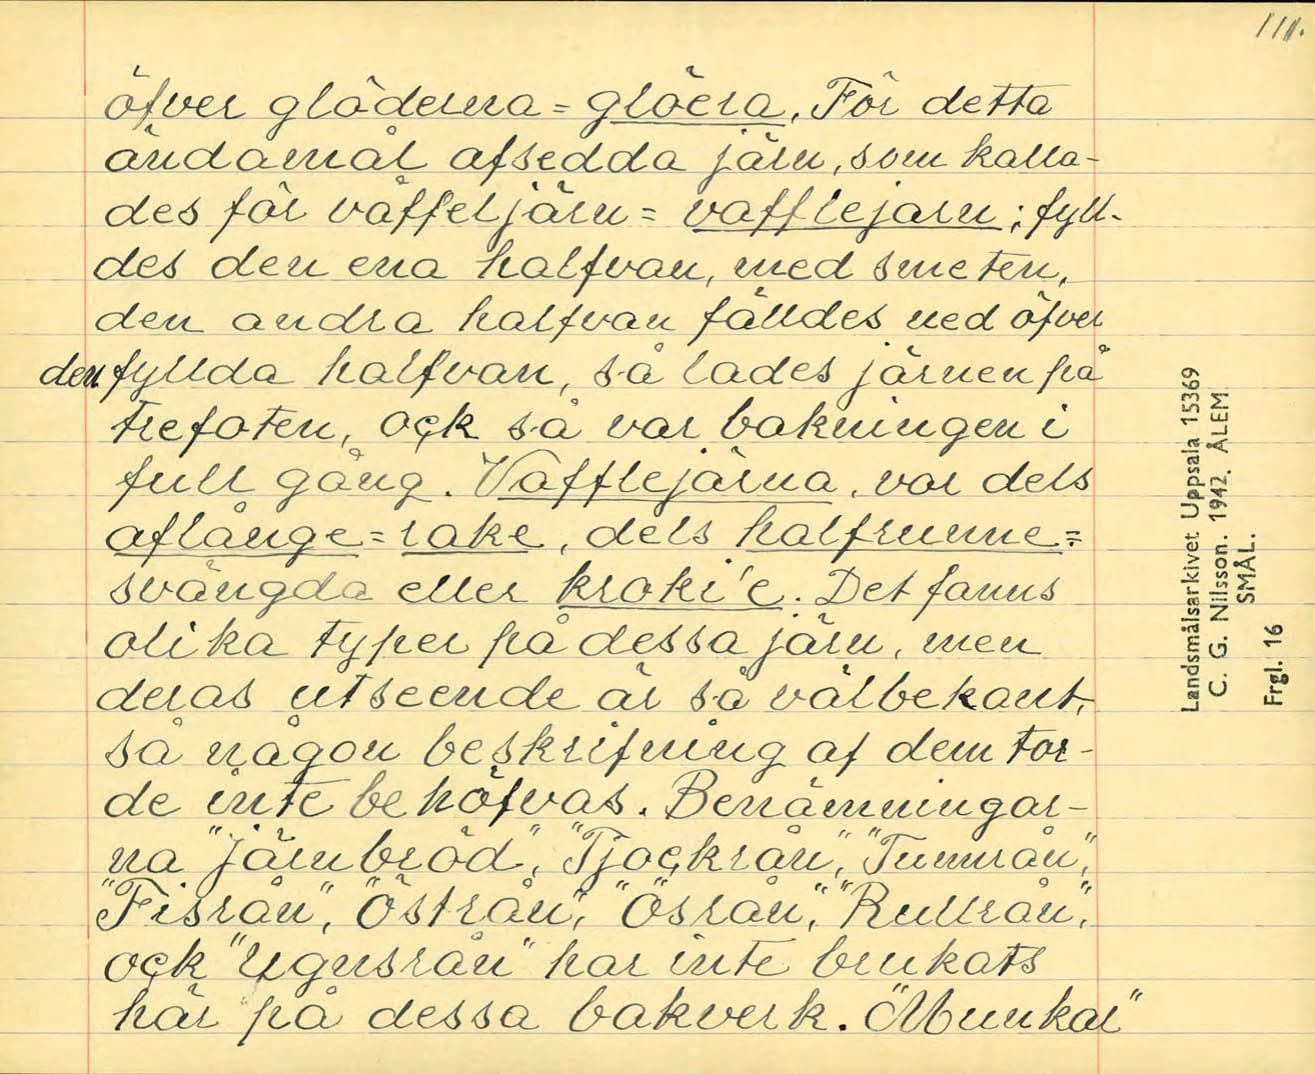 111.
öfver glöderna = glöera. För detta
ändamål afsedda järn, som kalla-
des för våffeljärn = vafflejarn; fyll-
des den ena halfvan, med smeten,
den andra halfvan fälldes ned öfver
den fyllda halfvan, så lades järnen på
trefoten, oçk så var bakningen i
full gång. Vafflejärna, var dels
aflånge = rake, dels halfrunne =
svängda eller kroki'e. Det fanns
olika typer på dessa järn, men
deras utseende är så välbekant,
så någon beskrifning af dem tor-
de inte behöfvas. Benämningar-
na "järnbröd", "Tjoçkrån", "Tunnrån",
"Fisrån", "Östrån", "Ösrån", "Rullrån",
oçk "Ugnsrån" har inte brukats
här på dessa bakverk. "Munkar"
Landsmålsarkivet Uppsala 15369
C. G. Nilsson. 1942. ÅLEM
SMÅL.
Frgl. 16